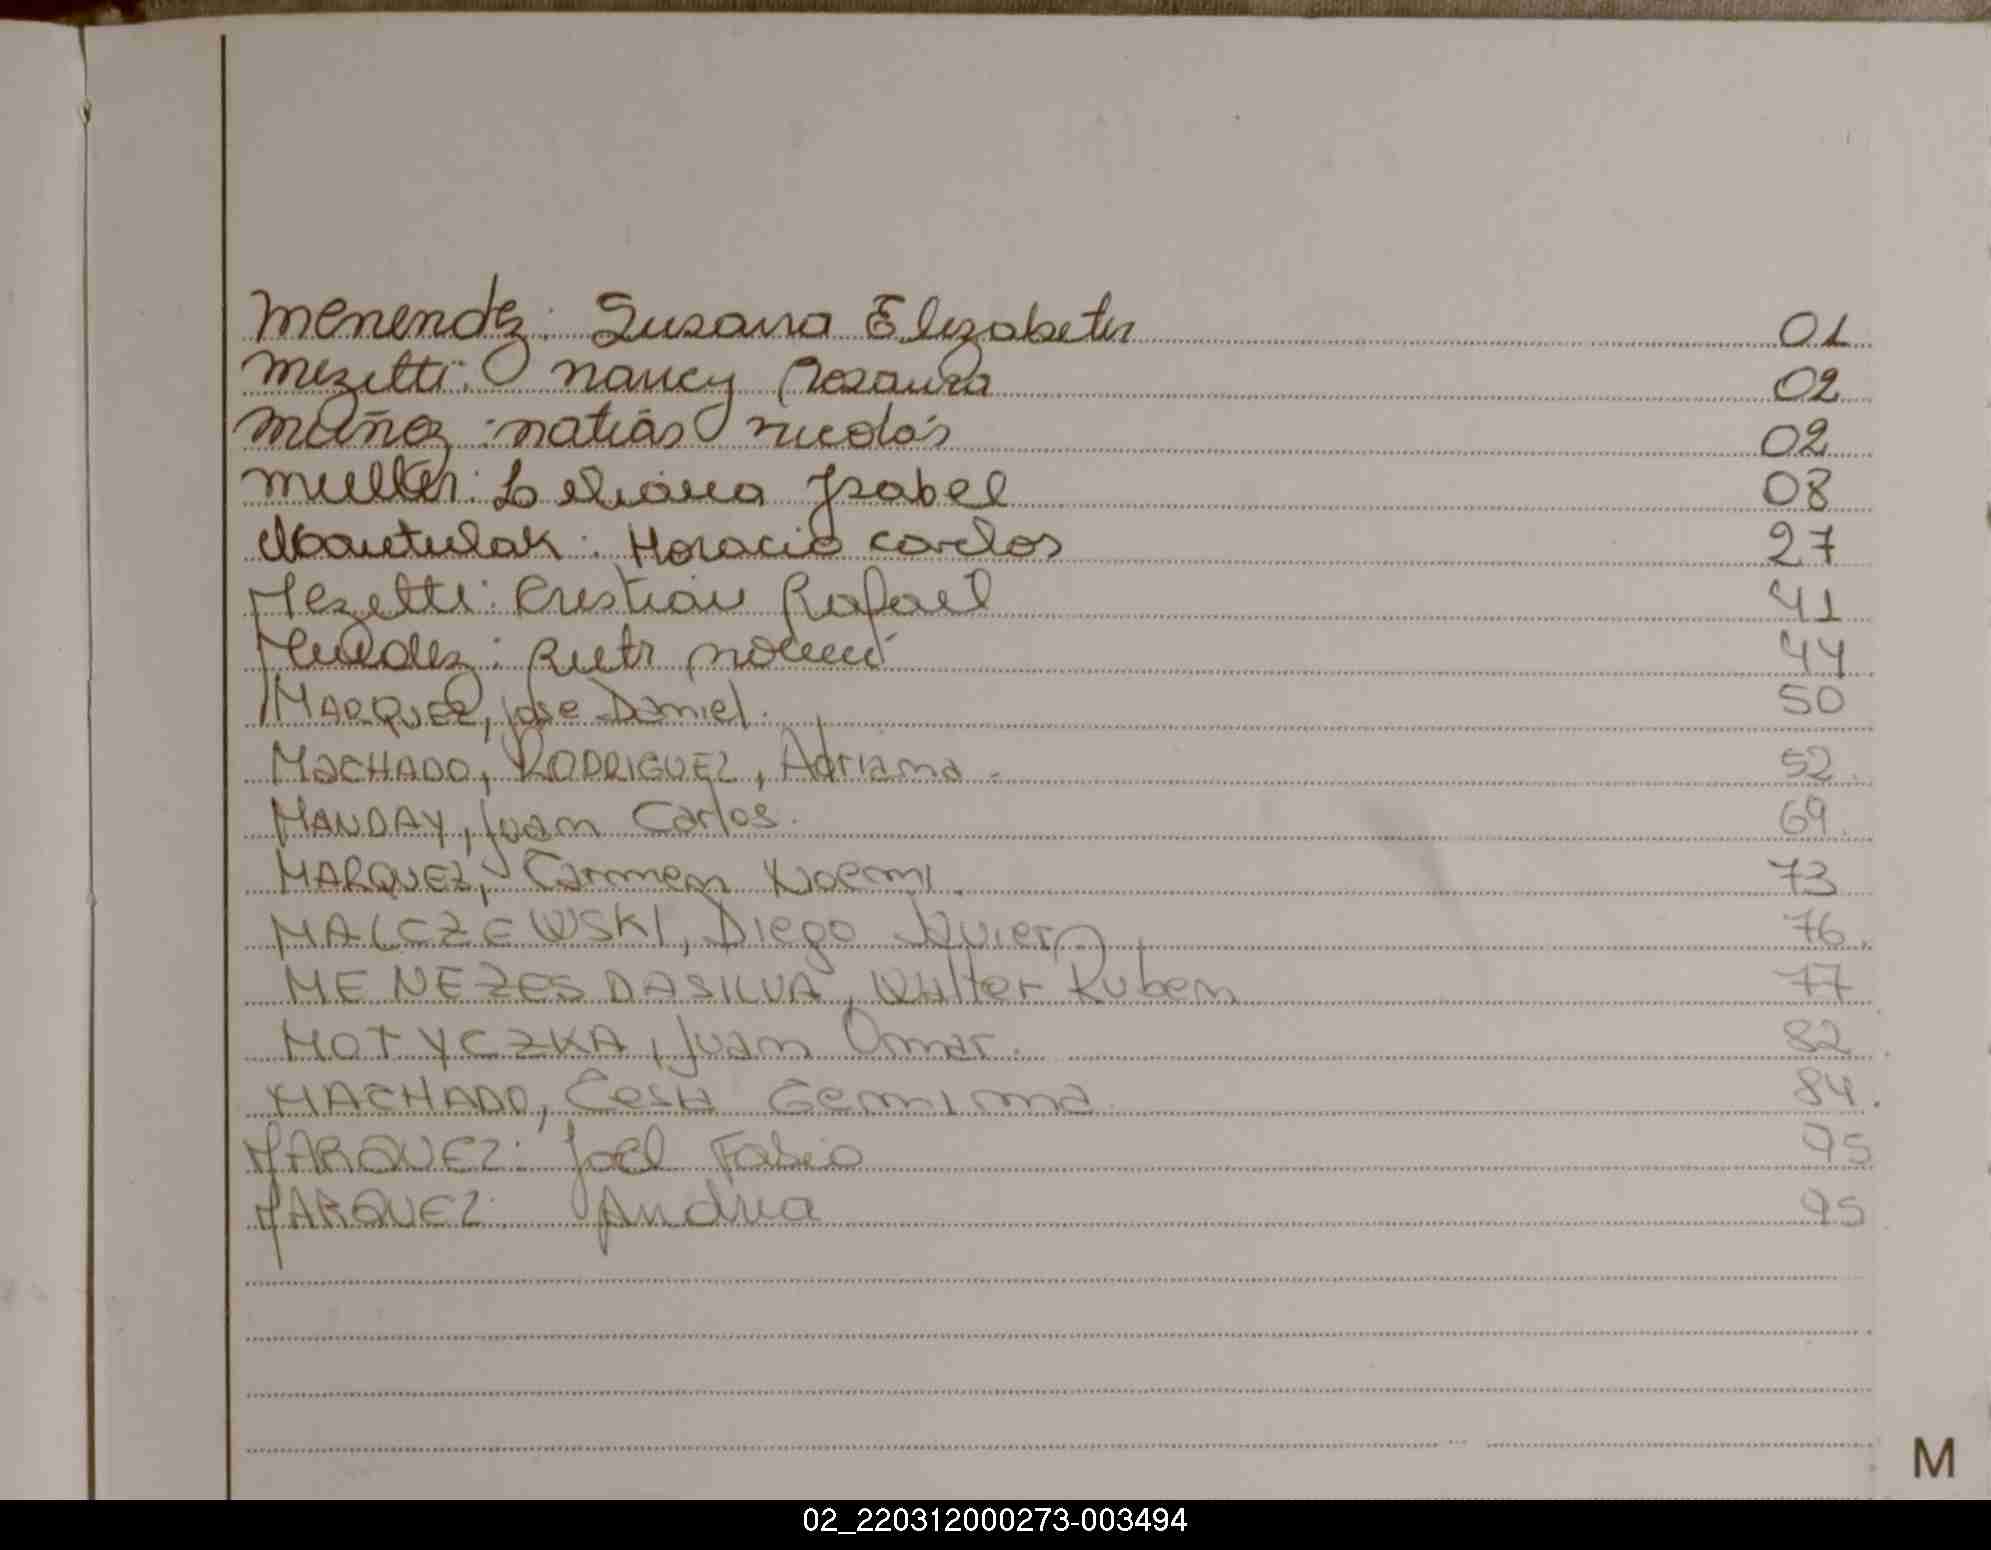 Menendez: Susana Elizabeth 01
Mezetti: Nancy Rosaura 02
Muñoz: Matías Nicolás 02
Muller: Liliana Isabel 08
Mautulak: Horacio Carlos 27
Mezetti: Cristian Rafael 41
Mendez: Ruth Noemí 44
MARQUEZ, Jose Daniel. 50
MACHADO, RODRIGUEZ, Adriana. 52.
MANDAY, Juan Carlos. 69.
MARQUEZ, Carmen Noemi. 73
MALCZEWSKI, Diego Javier 76.
MENEZES DASILVA, Walter Ruben 77
MOTYCZKA, Juan Omar. 82.
MACHADO, Gemima 84.
MARQUEZ: Joel Fabio 95
MARQUEZ: Andrea 95
M
02_220312000273-003494